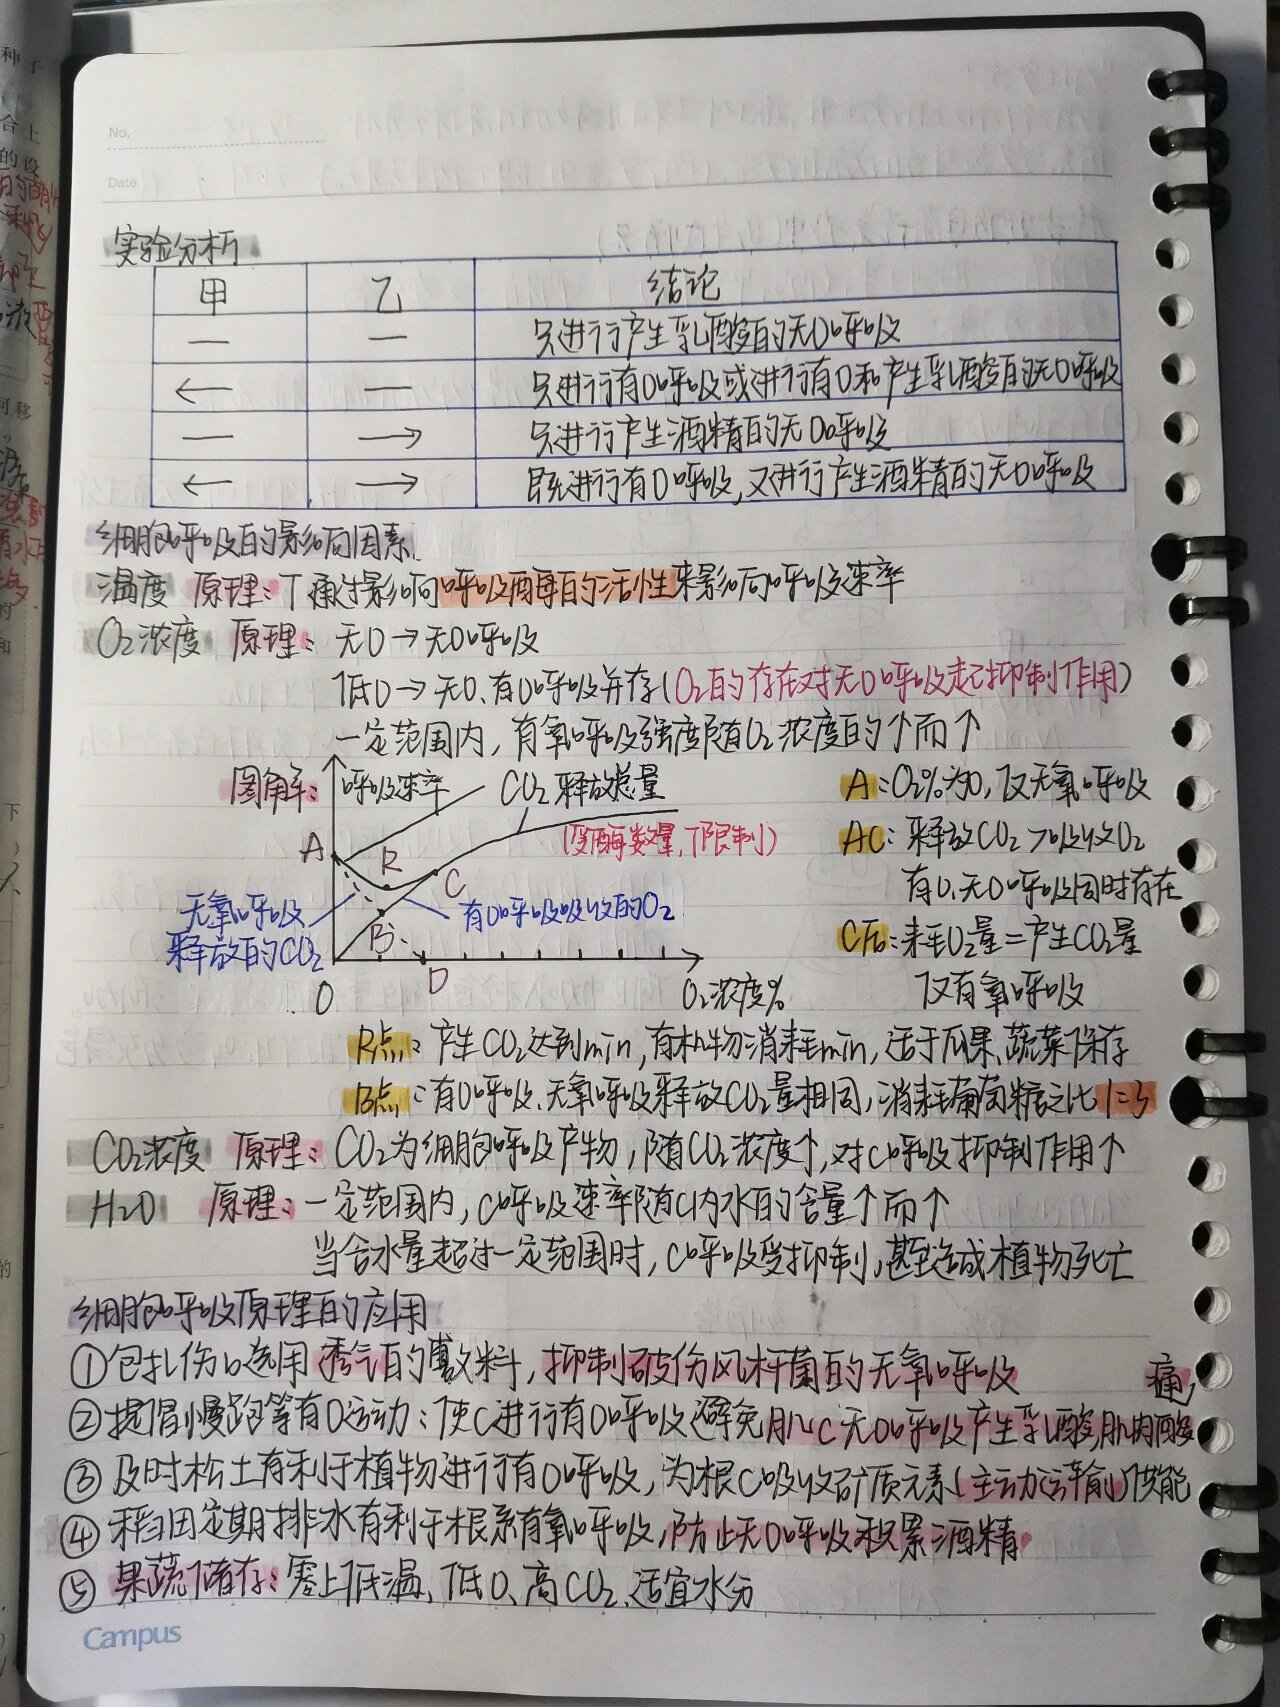 No.
Date
实验分析
甲 乙 结论
— — 只进行产生乳酸的无O呼吸
← — 只进行有O呼吸或进行有O和产生乳酸的无O呼吸
— → 只进行产生酒精的无O呼吸
← → 既进行有O呼吸,又进行产生酒精的无O呼吸
细胞呼吸的影响因素.
温度 原理:T通过影响呼吸酶的活性来影响呼吸速率
O₂浓度 原理: 无O→无O呼吸
低O→无O、有O呼吸并存(O₂的存在对无O呼吸起抑制作用)
一定范围内,有氧呼吸强度随O₂浓度的↑而↑
图解: 呼吸速率 CO₂释放总量
(受酶数量,T限制)
A
R
C
B
D
O
无氧呼吸
释放的CO₂
有O呼吸吸收的O₂
O₂浓度%
A:O₂%为0,仅无氧呼吸
AC:释放CO₂>吸收O₂
有O、无O呼吸同时存在
C后:耗O₂量=产生CO₂量
仅有氧呼吸
R点:产生CO₂达到min,有机物消耗min,适于瓜果、蔬菜保存
B点:有O呼吸、无氧呼吸释放CO₂量相同,消耗葡萄糖之比1:3
CO₂浓度 原理:CO₂为细胞呼吸产物,随CO₂浓度↑,对C呼吸抑制作用↑
H₂O 原理:一定范围内,C呼吸速率随C内水的含量↑而↑
当含水量超过一定范围时,C呼吸受抑制,甚至造成植物死亡
细胞呼吸原理的应用
①包扎伤口选用透气的敷料,抑制破伤风杆菌的无氧呼吸
②提倡慢跑等有O运动:使C进行有O呼吸避免肌C无O呼吸产生乳酸,肌肉酸痛
③及时松土有利于植物进行有O呼吸,为根C吸收矿质元素(主动运输)供能
④稻田定期排水有利于根系有氧呼吸,防止无O呼吸积累酒精
⑤果蔬储存:零上低温、低O、高CO₂、适宜水分
Campus